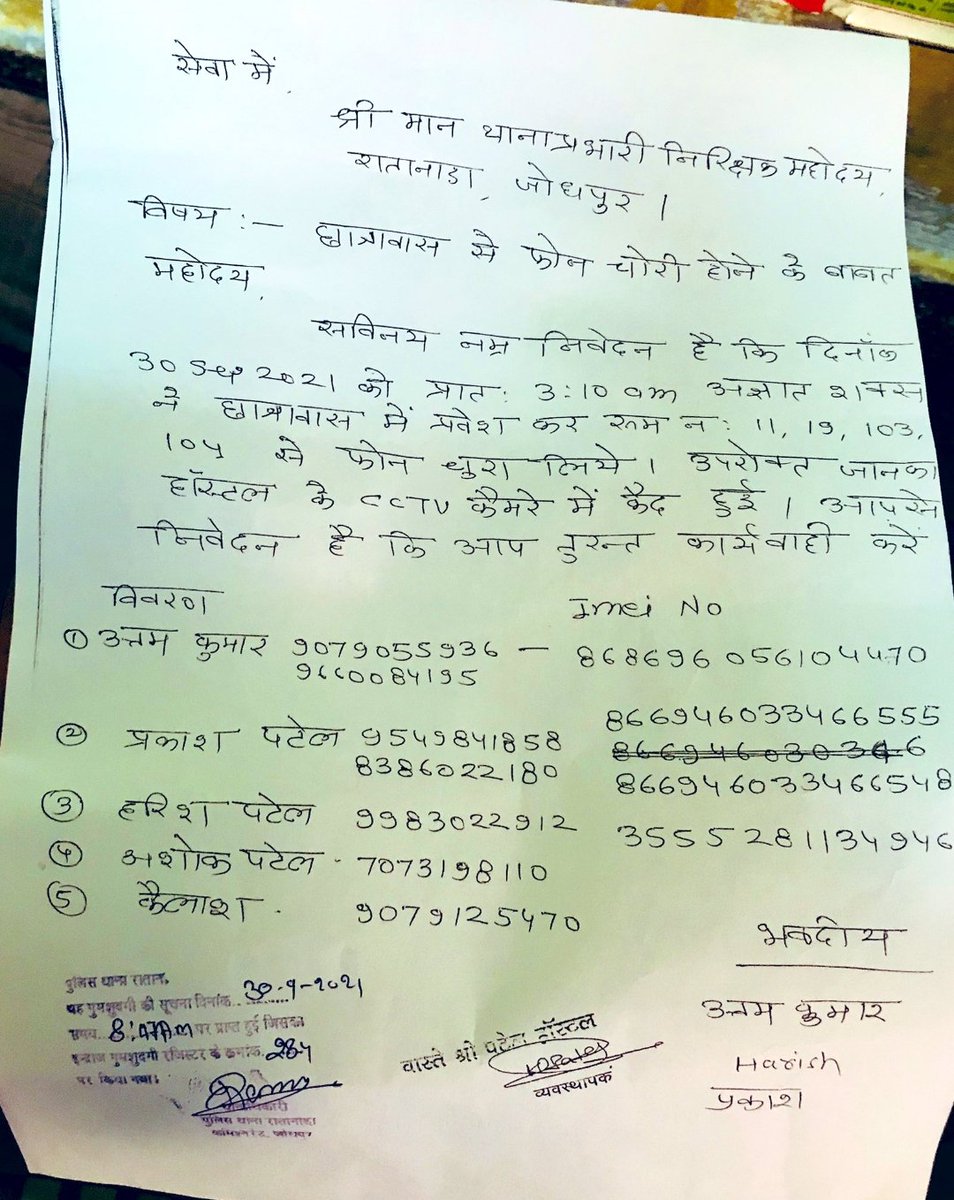 सेवा में,
श्री मान थानाप्रभारी निरिक्षक महोदय,
रातानाडा, जोधपुर ।
विषय :- छात्रावास से फोन चोरी होने के बाबत
महोदय,
सविनय नम्र निवेदन है कि दिनाँक
30 Sep 2021 को प्रात: 3:10 am अज्ञात शक्स
ने छात्रावास में प्रवेश कर रूम न: 11, 19, 103,
104 से फोन चुरा लिये । उपरोक्त जानका
हॉस्टल के CCTV कैमरे में कैद हुई । आपसे
निवेदन है कि आप तुरन्त कार्यवाही करें
विवरण Imei No
① उत्तम कुमार 9079055936 — 868696056104470
9660084195
② प्रकाश पटेल 9549841858 866946033466555
8386022180 866946033466548
③ हरिश पटेल 9983022912 3555281134946
④ अशोक पटेल - 7073198110
⑤ कैलाश - 9079125470
भवदीय
उत्तम कुमार
Harish
प्रकाश
पुलिस थाना राताना
यह गुमशुदगी की सूचना दिनांक 30-9-2021
समय 8:47AM पर प्राप्त हुई जिसका
इन्द्राज गुमशुदगी रजिस्टर के क्रमांक 284
पर किया गया।
पुलिस थाना रातानाडा
वास्ते श्री पटेल हॉस्टल
व्यवस्थापक